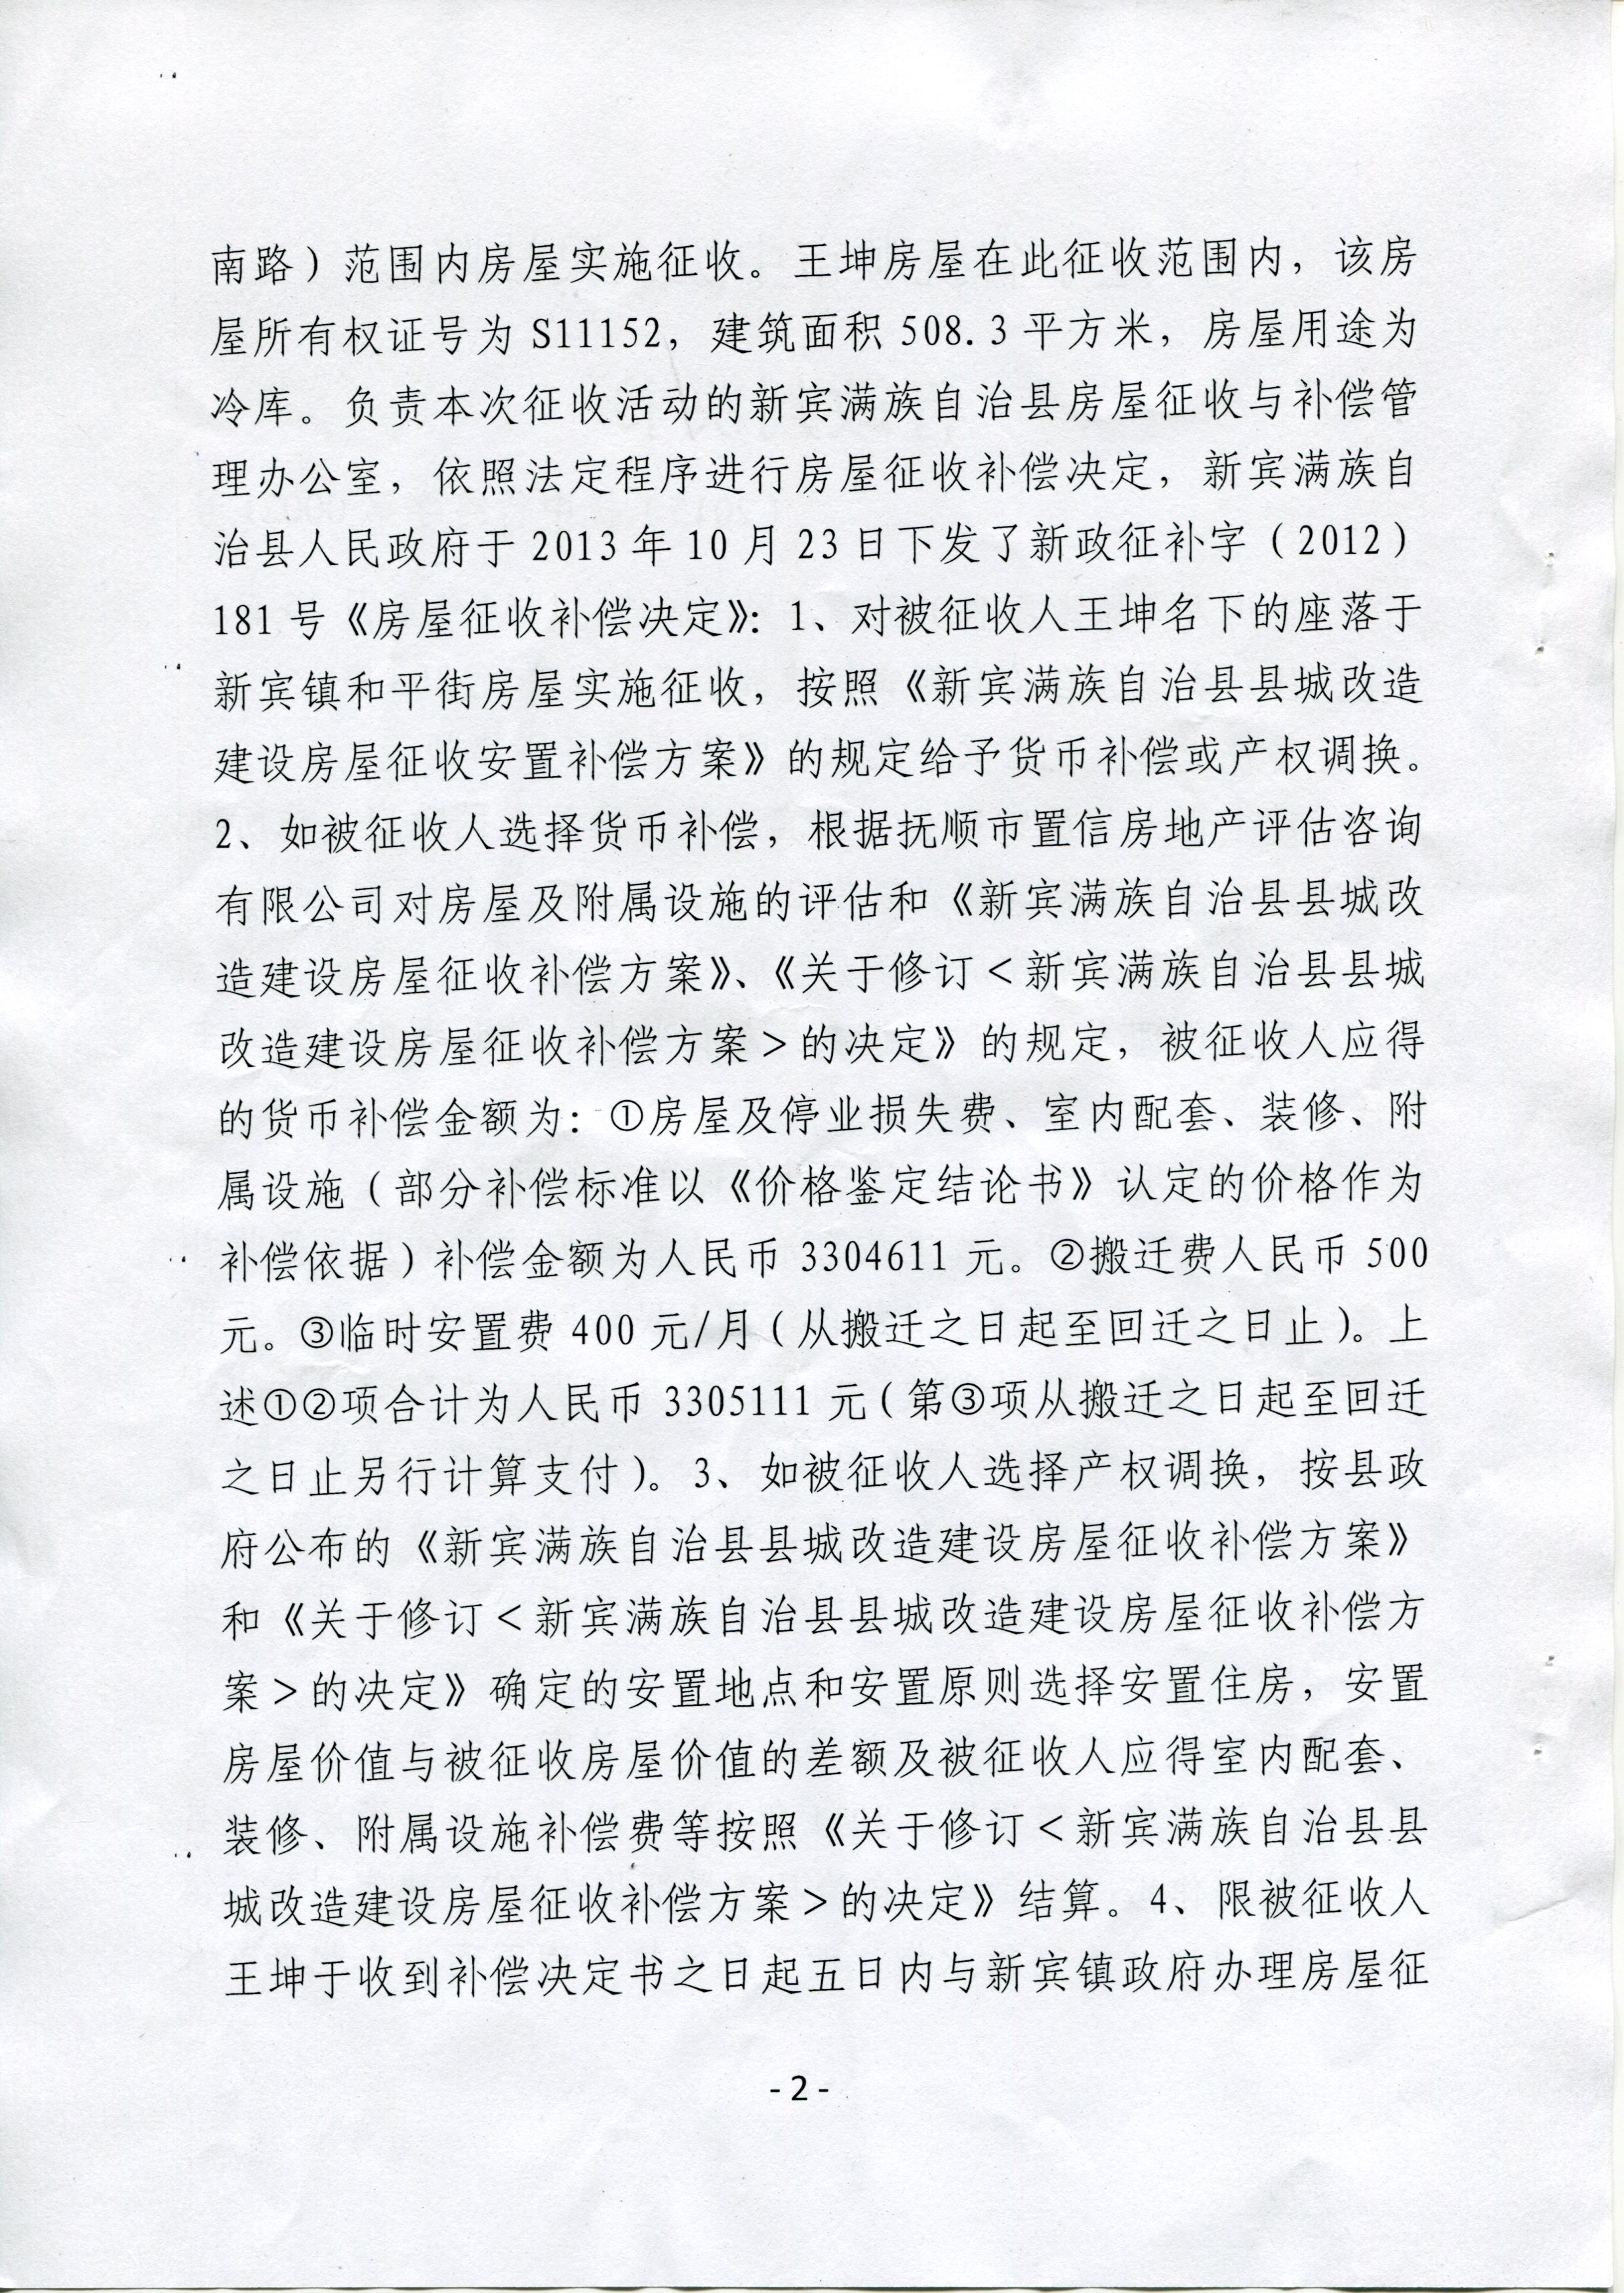 南路）范围内房屋实施征收。王坤房屋在此征收范围内，该房
屋所有权证号为 S11152，建筑面积 508.3 平方米，房屋用途为
冷库。负责本次征收活动的新宾满族自治县房屋征收与补偿管
理办公室，依照法定程序进行房屋征收补偿决定，新宾满族自
治县人民政府于 2013 年 10 月 23 日下发了新政征补字（2012）
181 号《房屋征收补偿决定》：1、对被征收人王坤名下的座落于
新宾镇和平街房屋实施征收，按照《新宾满族自治县县城改造
建设房屋征收安置补偿方案》的规定给予货币补偿或产权调换。
2、如被征收人选择货币补偿，根据抚顺市置信房地产评估咨询
有限公司对房屋及附属设施的评估和《新宾满族自治县县城改
造建设房屋征收补偿方案》、《关于修订＜新宾满族自治县县城
改造建设房屋征收补偿方案＞的决定》的规定，被征收人应得
的货币补偿金额为：①房屋及停业损失费、室内配套、装修、附
属设施（部分补偿标准以《价格鉴定结论书》认定的价格作为
补偿依据）补偿金额为人民币 3304611 元。②搬迁费人民币 500
元。③临时安置费 400 元/月（从搬迁之日起至回迁之日止）。上
述①②项合计为人民币 3305111 元（第③项从搬迁之日起至回迁
之日止另行计算支付）。3、如被征收人选择产权调换，按县政
府公布的《新宾满族自治县县城改造建设房屋征收补偿方案》
和《关于修订＜新宾满族自治县县城改造建设房屋征收补偿方
案＞的决定》确定的安置地点和安置原则选择安置住房，安置
房屋价值与被征收房屋价值的差额及被征收人应得室内配套、
装修、附属设施补偿费等按照《关于修订＜新宾满族自治县县
城改造建设房屋征收补偿方案＞的决定》结算。4、限被征收人
王坤于收到补偿决定书之日起五日内与新宾镇政府办理房屋征
- 2 -